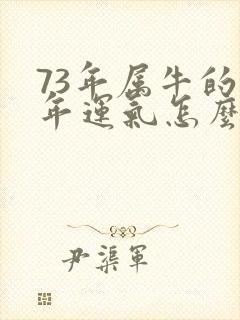 73年属牛的
年運氣怎麼
尹渠軍